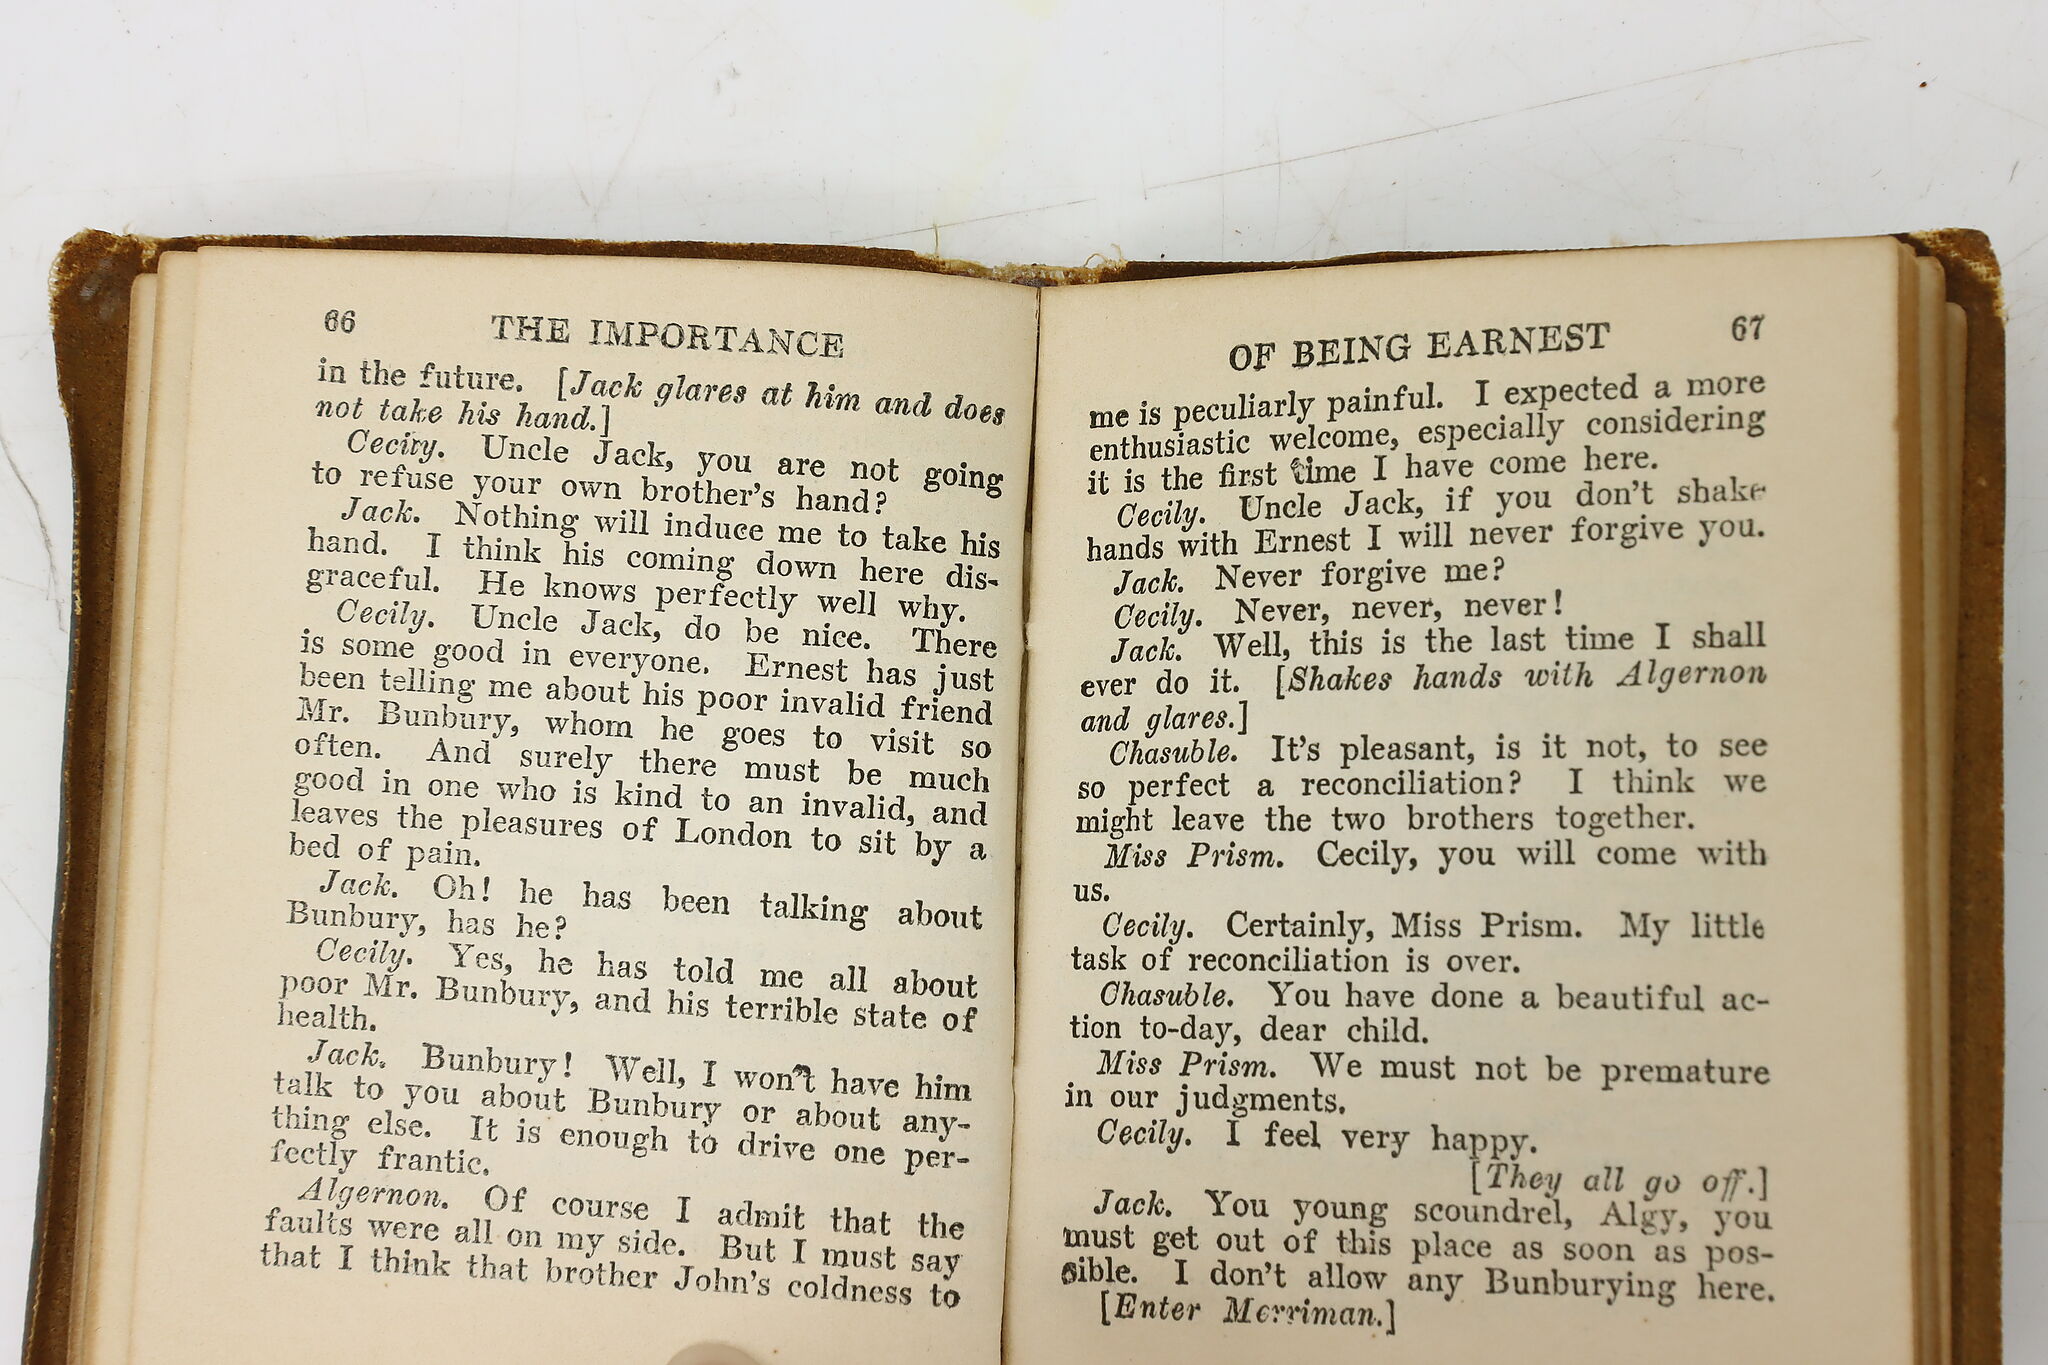 66
THE IMPORTANCE
in the future. [Jack glares at him and does
not take his hand.]
Cecily. Uncle Jack, you are not going
to refuse your own brother's hand?
Jack. Nothing will induce me to take his
hand. I think his coming down here dis-
graceful. He knows perfectly well why.
Cecily. Uncle Jack, do be nice. There
is some good in everyone. Ernest has just
been telling me about his poor invalid friend
Mr. Bunbury, whom he goes to visit so
often. And surely there must be much
good in one who is kind to an invalid, and
leaves the pleasures of London to sit by a
bed of pain.
Jack. Oh! he has been talking about
Bunbury, has he?
Cecily. Yes, he has told me all about
poor Mr. Bunbury, and his terrible state of
health.
Jack. Bunbury! Well, I won't have him
talk to you about Bunbury or about any-
thing else. It is enough to drive one per-
fectly frantic.
Algernon. Of course I admit that the
faults were all on my side. But I must say
that I think that brother John's coldness to
OF BEING EARNEST
67
me is peculiarly painful. I expected a more
enthusiastic welcome, especially considering
it is the first time I have come here.
Cecily. Uncle Jack, if you don't shake
hands with Ernest I will never forgive you.
Jack. Never forgive me?
Cecily. Never, never, never!
Jack. Well, this is the last time I shall
ever do it. [Shakes hands with Algernon
and glares.]
Chasuble. It's pleasant, is it not, to see
so perfect a reconciliation? I think we
might leave the two brothers together.
Miss Prism. Cecily, you will come with
us.
Cecily. Certainly, Miss Prism. My little
task of reconciliation is over.
Chasuble. You have done a beautiful ac-
tion to-day, dear child.
Miss Prism. We must not be premature
in our judgments.
Cecily. I feel very happy.
[They all go off.]
Jack. You young scoundrel, Algy, you
must get out of this place as soon as pos-
sible. I don't allow any Bunburying here.
[Enter Merriman.]